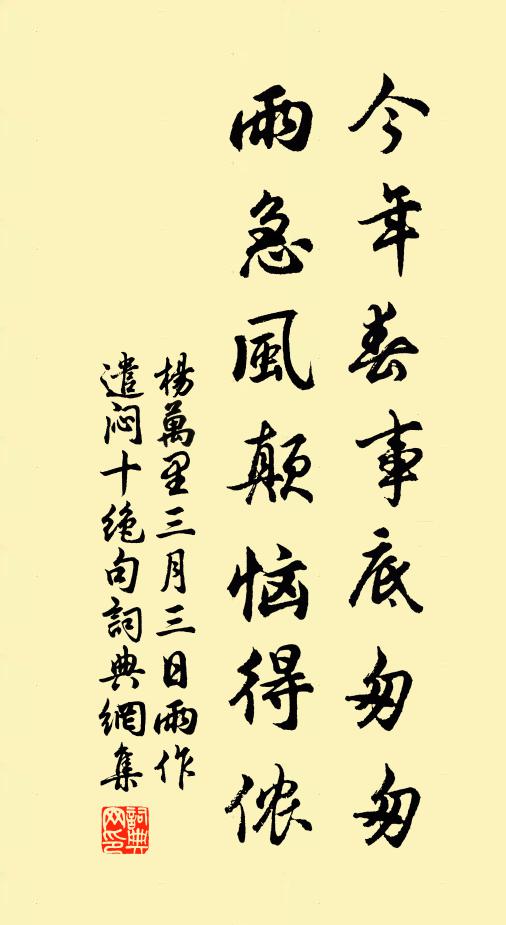 今年春事底匆匆
雨急風颠恼得侬
楊萬里三月三日雨作
遣闷十绝句詞典網集
詞典
网印